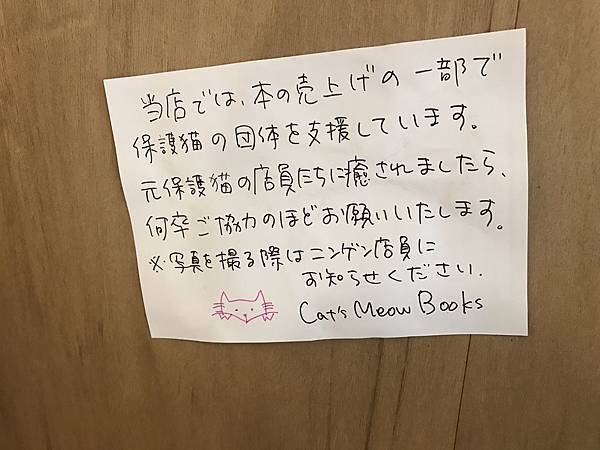 当店では、本の売上げの一部で
保護猫の団体を支援しています。
元保護猫の店員たちに癒されましたら、
何卒ご協力のほどお願いいたします。
※写真を撮る際はニンゲン店員に
お知らせください.
Cat's Meow Books